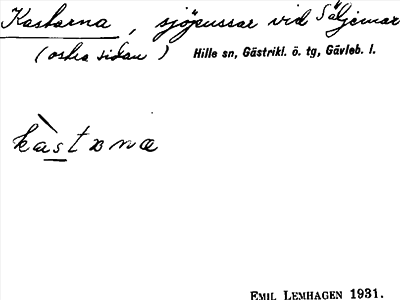 Kastarna, sjöpussar vid Säljemar
(östra sidan) Hille sn, Gästrikl. ö. tg, Gävleb. l.
kàstɜnɑ
EMIL LEMHAGEN 1931.